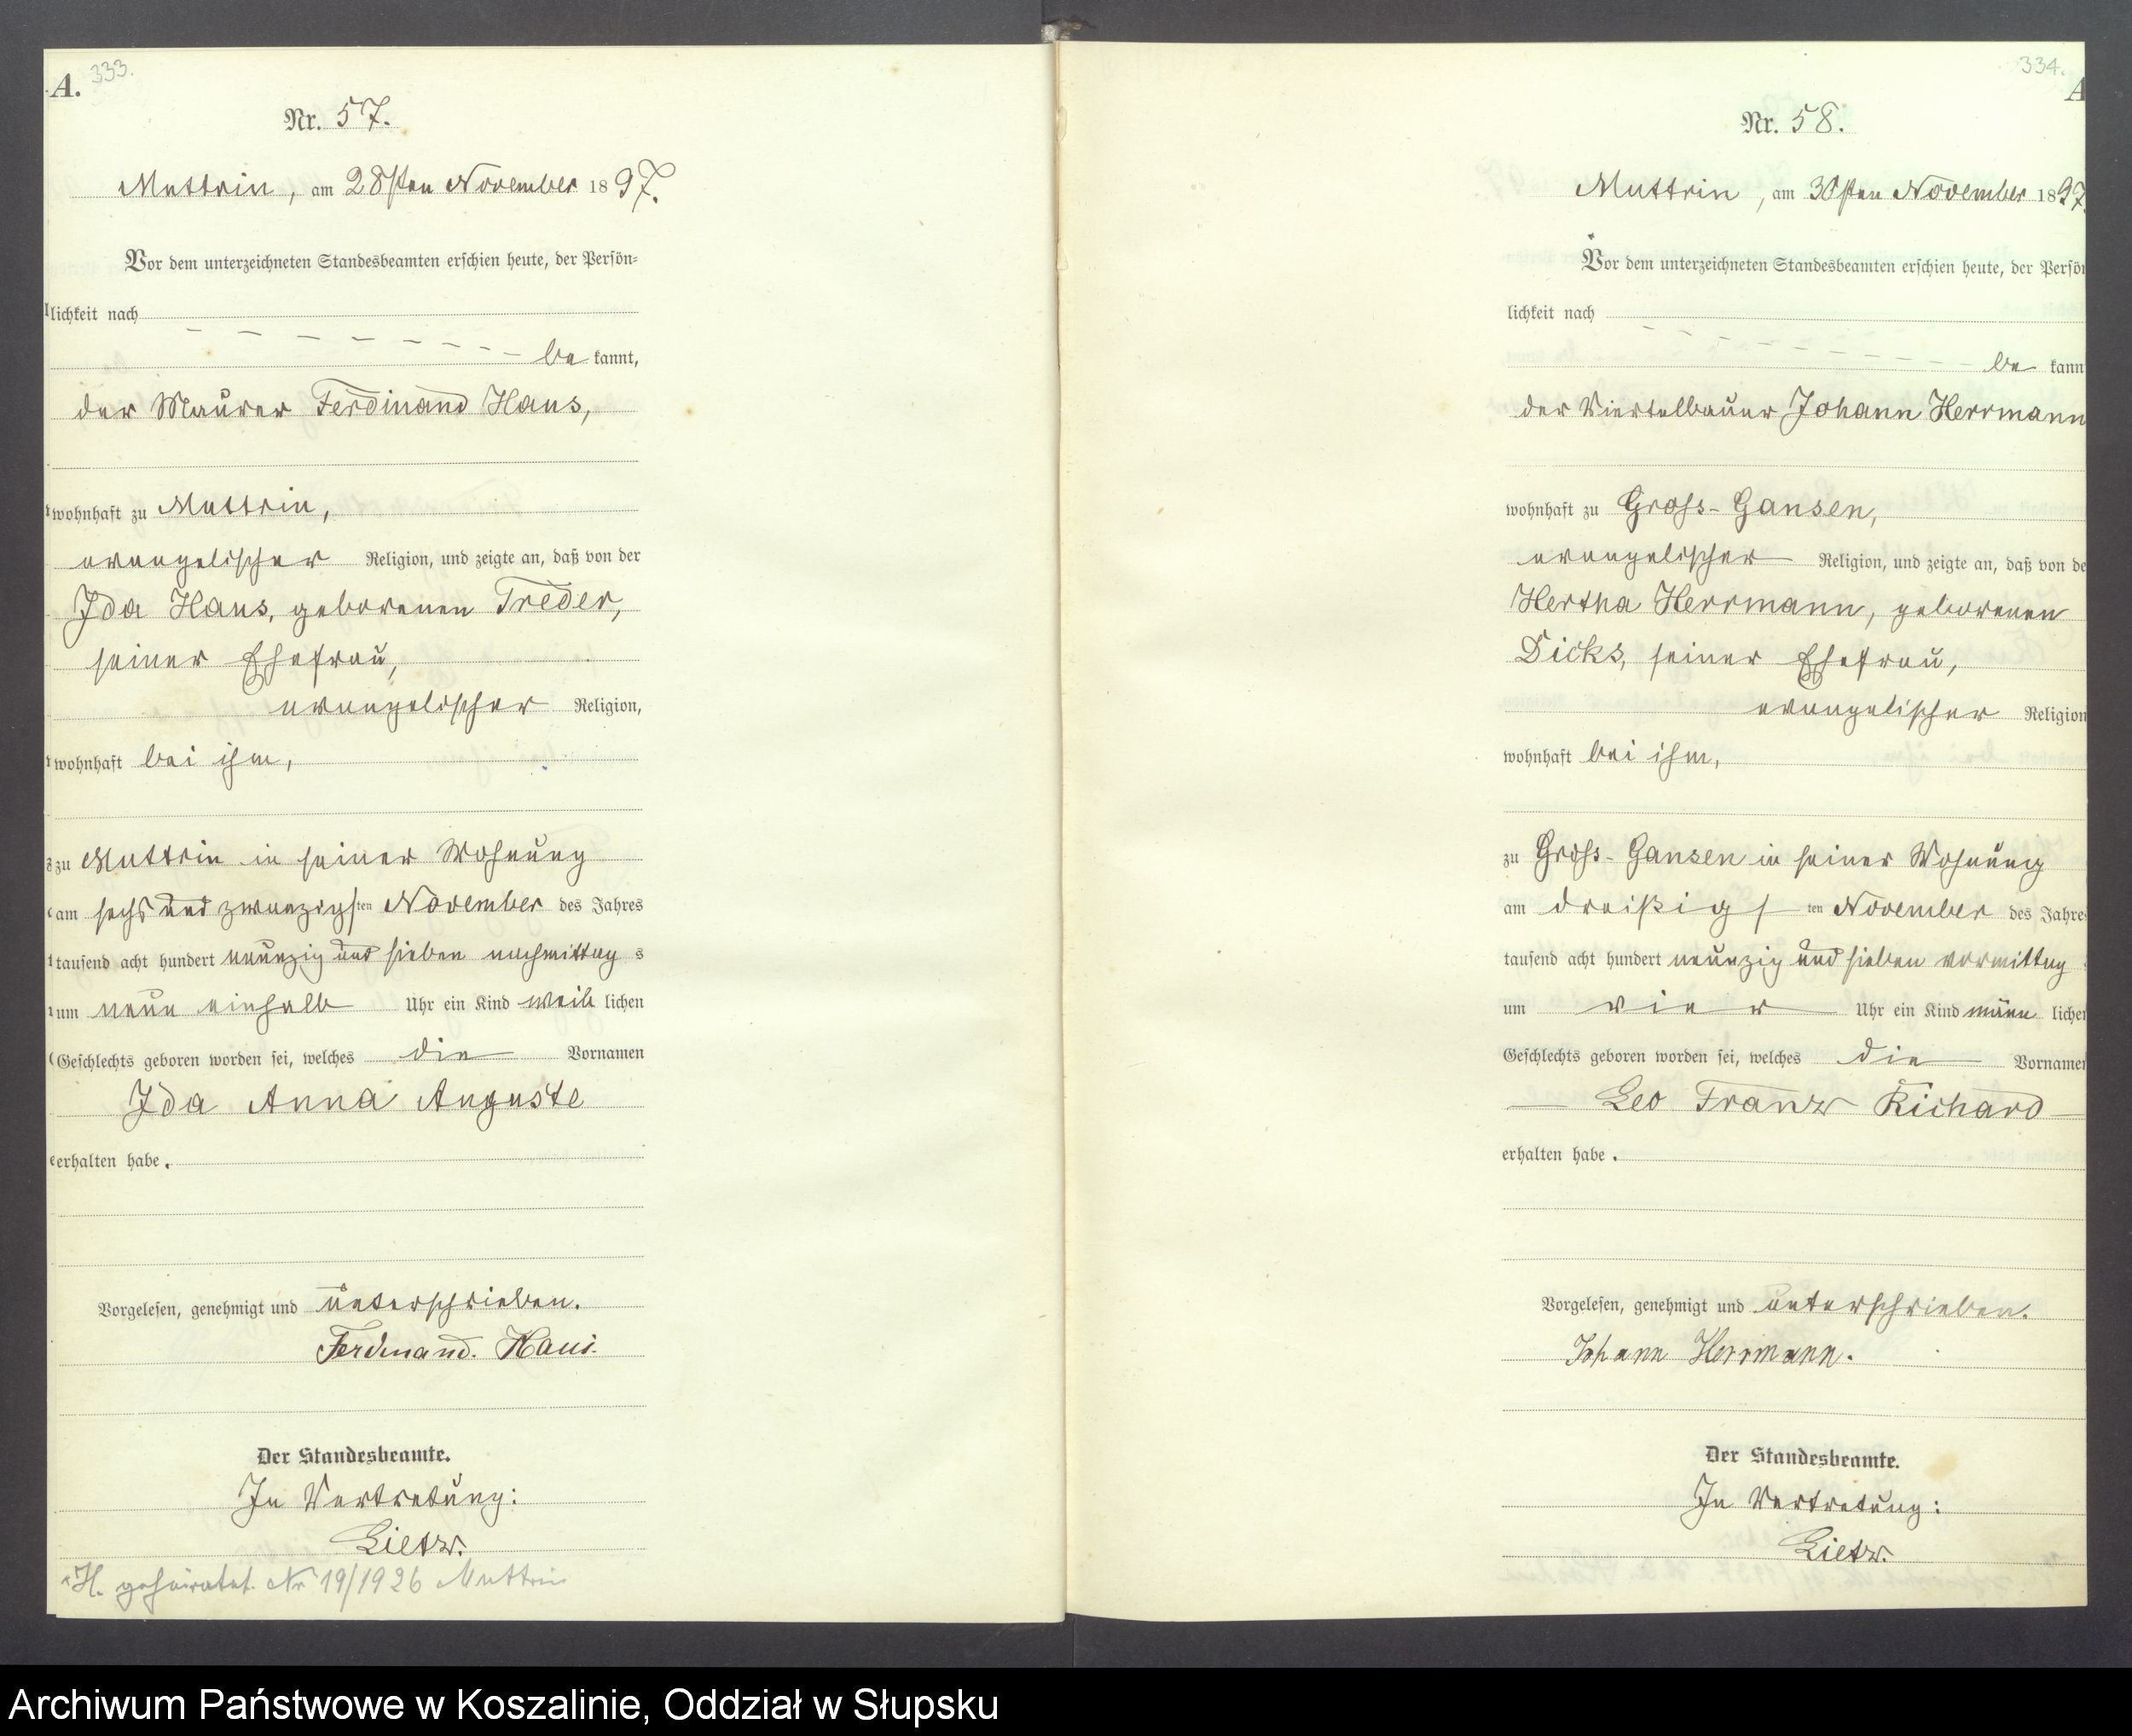 A. 333.
Nr. 57.
Muttrin, am 28sten November 1897.
Vor dem unterzeichneten Standesbeamten erschien heute, der Persön-
lichkeit nach
be kannt,
der Maurer Ferdinand Haus,
wohnhaft zu Muttrin,
evangelischer Religion, und zeigte an, daß von der
Ida Haus, geborenen Treder,
seiner Ehefrau,
evangelischer Religion,
wohnhaft bei ihm,
zu Muttrin in seiner Wohnung
am sechs und zwanzigsten November des Jahres
tausend acht hundert neunzig und sieben nachmittag s
um neun einhalb Uhr ein Kind weib lichen
Geschlechts geboren worden sei, welches die Vornamen
Ida Anna Auguste
erhalten habe.
Vorgelesen, genehmigt und unterschrieben.
Ferdinand. Haus.
Der Standesbeamte.
In Vertretung:
Lietz.
H. geheiratet. Nr 19/1926 Muttrin
334. A
Nr. 58.
Muttrin, am 30sten November 1897.
Vor dem unterzeichneten Standesbeamten erschien heute, der Persön
lichkeit nach
be kann
der Viertelbauer Johann Herrmann
wohnhaft zu Gross-Gansen,
evangelischer Religion, und zeigte an, daß von de
Hertha Herrmann, geborenen
Dicks, seiner Ehefrau,
evangelischer Religion
wohnhaft bei ihm,
zu Gross-Gansen in seiner Wohnung
am dreißigs ten November des Jahre
tausend acht hundert neunzig und sieben vormittag
um vier Uhr ein Kind männ lichen
Geschlechts geboren worden sei, welches die Vornamen
Leo Franz Richard
erhalten habe.
Vorgelesen, genehmigt und unterschrieben.
Johann Herrmann.
Der Standesbeamte.
In Vertretung:
Lietz.
Archiwum Państwowe w Koszalinie, Oddział w Słupsku